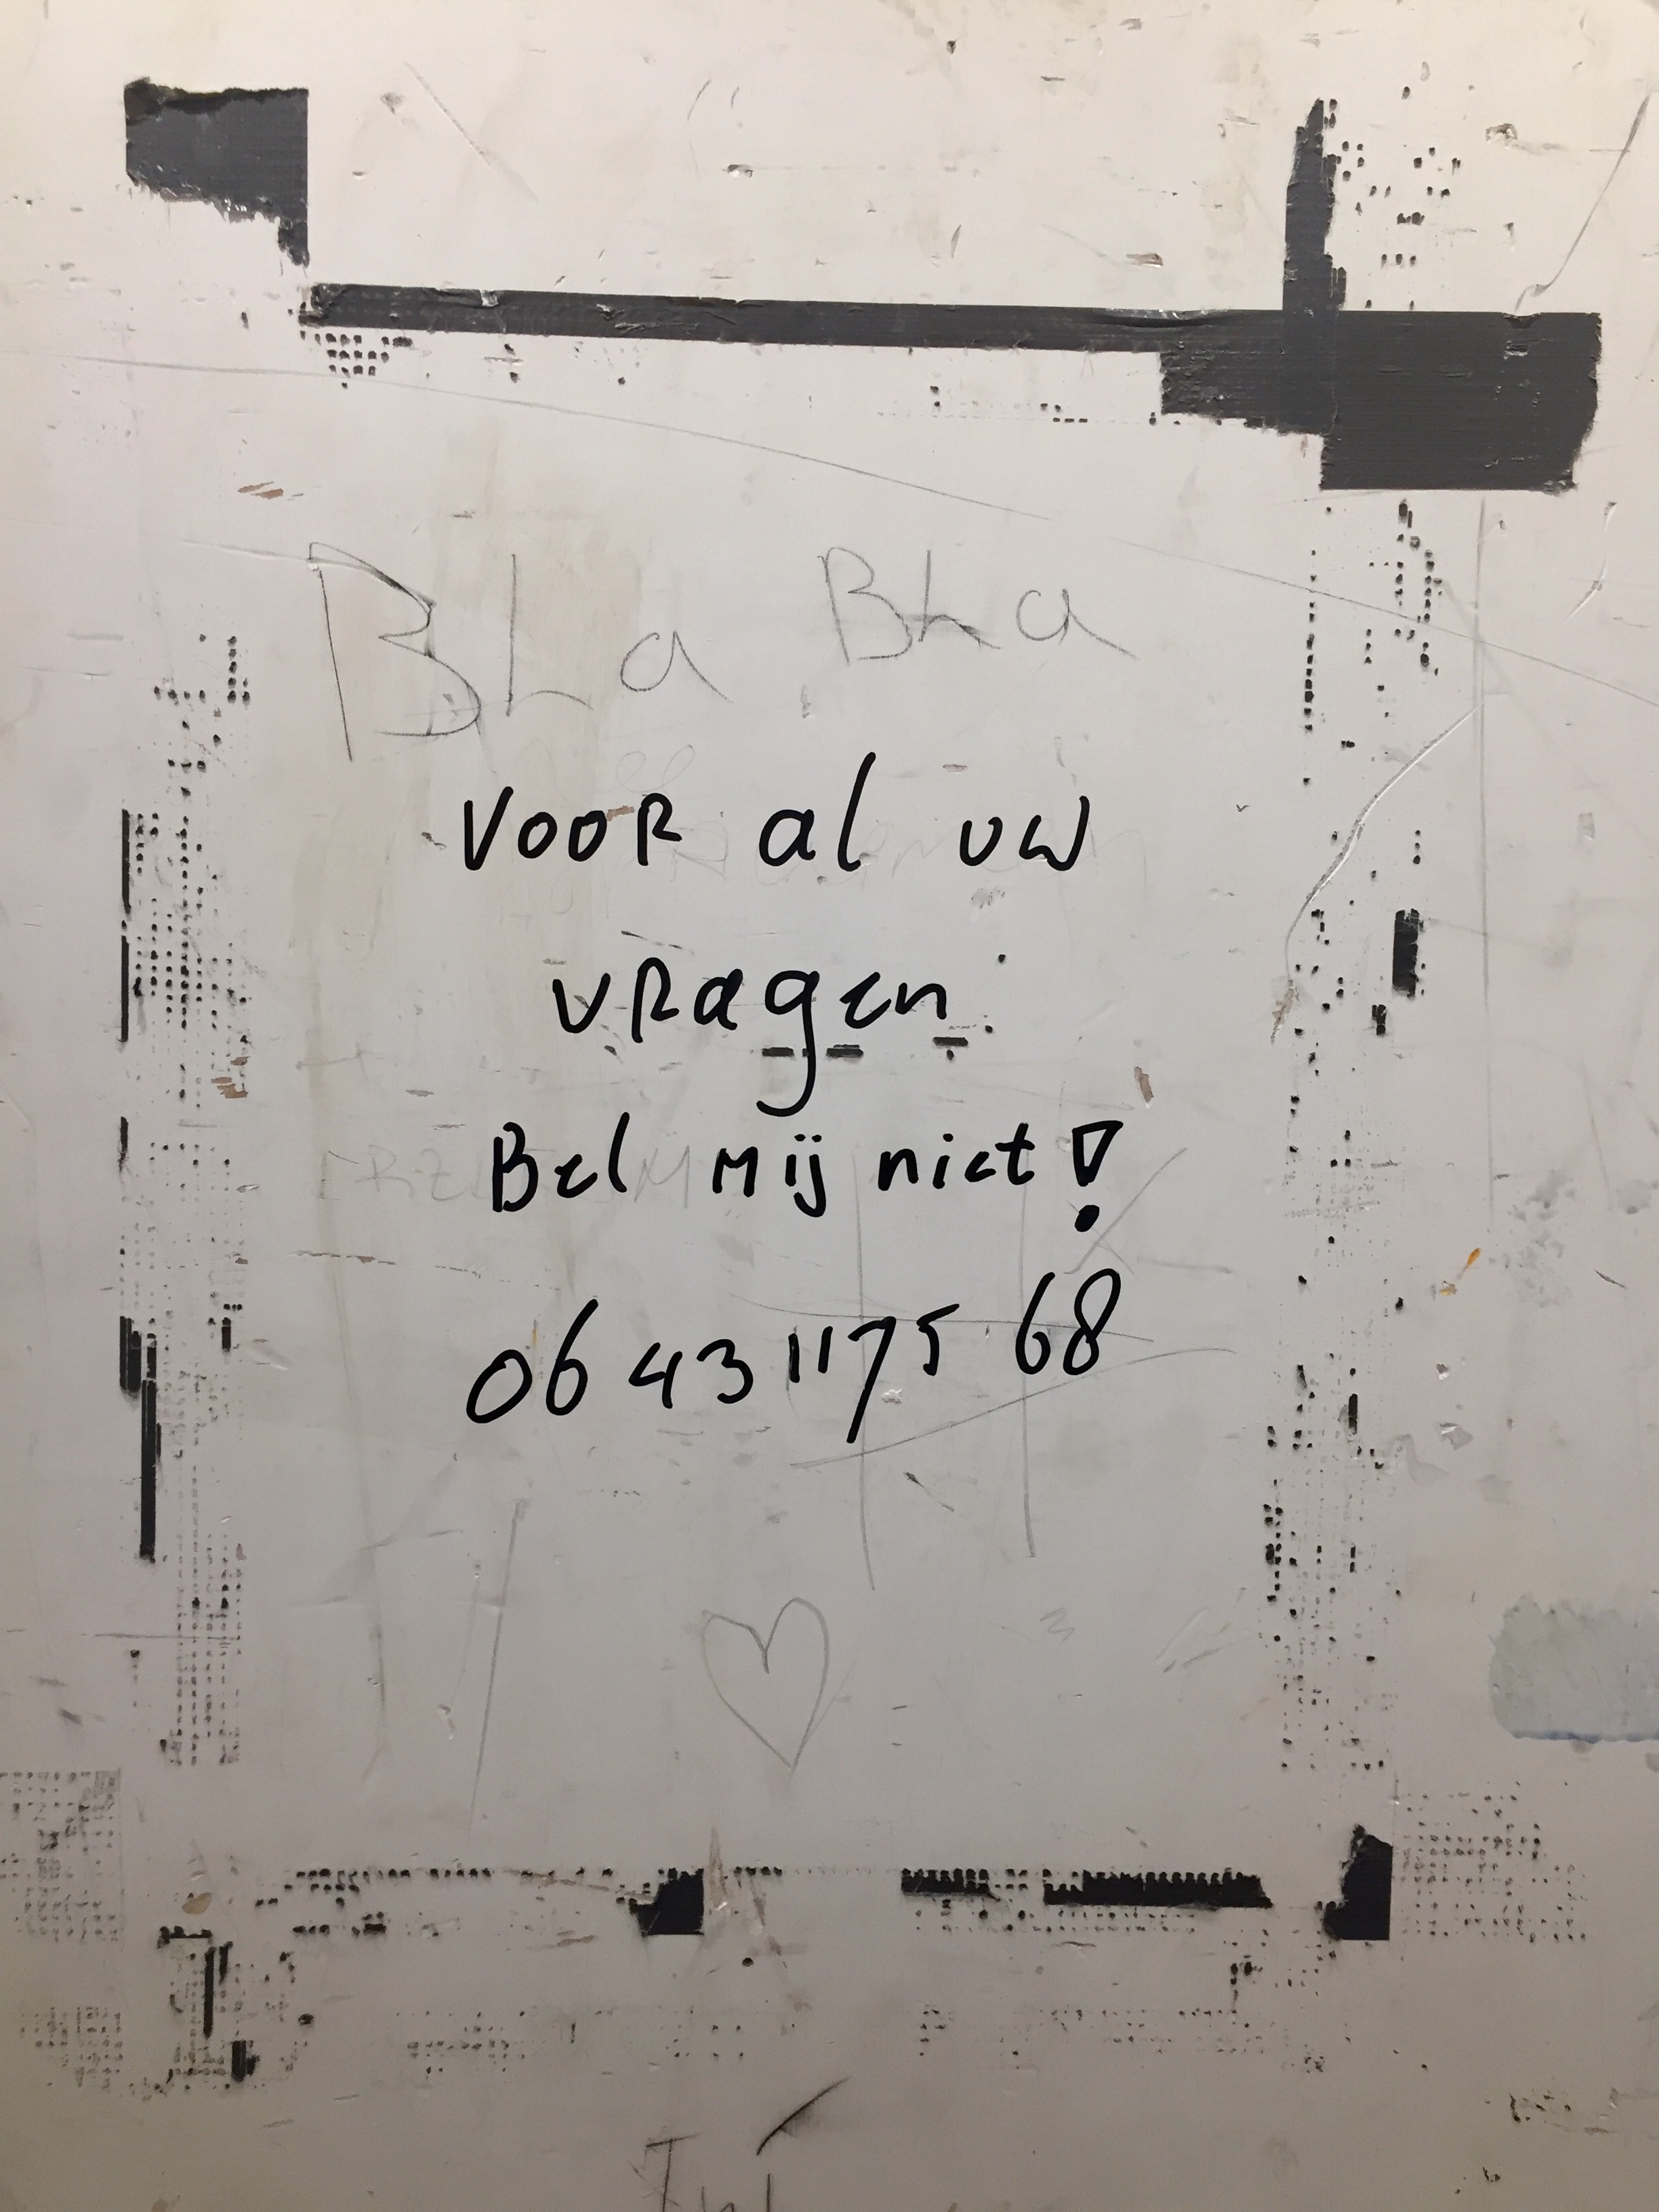 BLa BLa
VOOR al uw
vRagen
Bel Mij niet!
06 43 11 75 68